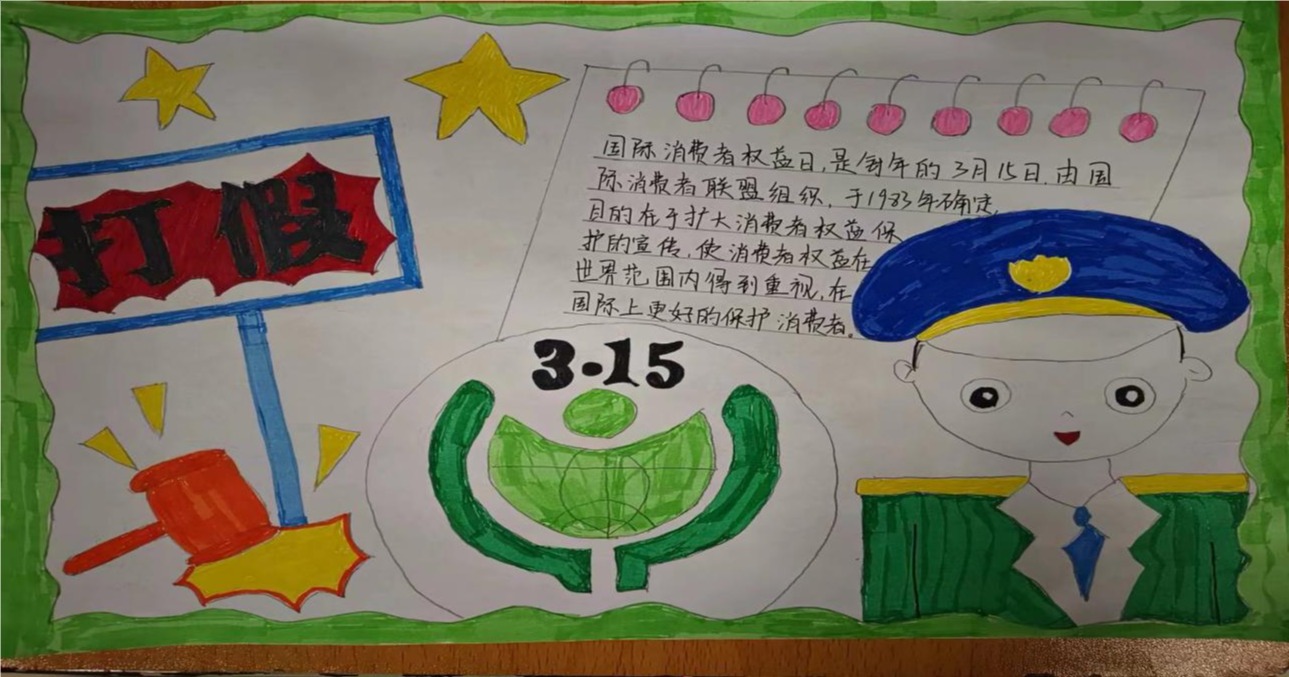 打假
国际消费者权益日,是每年的3月15日.由国
际消费者联盟组织,于1983年确定,
目的在于扩大消费者权益保
护的宣传,使消费者权益在
世界范围内得到重视,在
国际上更好的保护消费者。
3·15